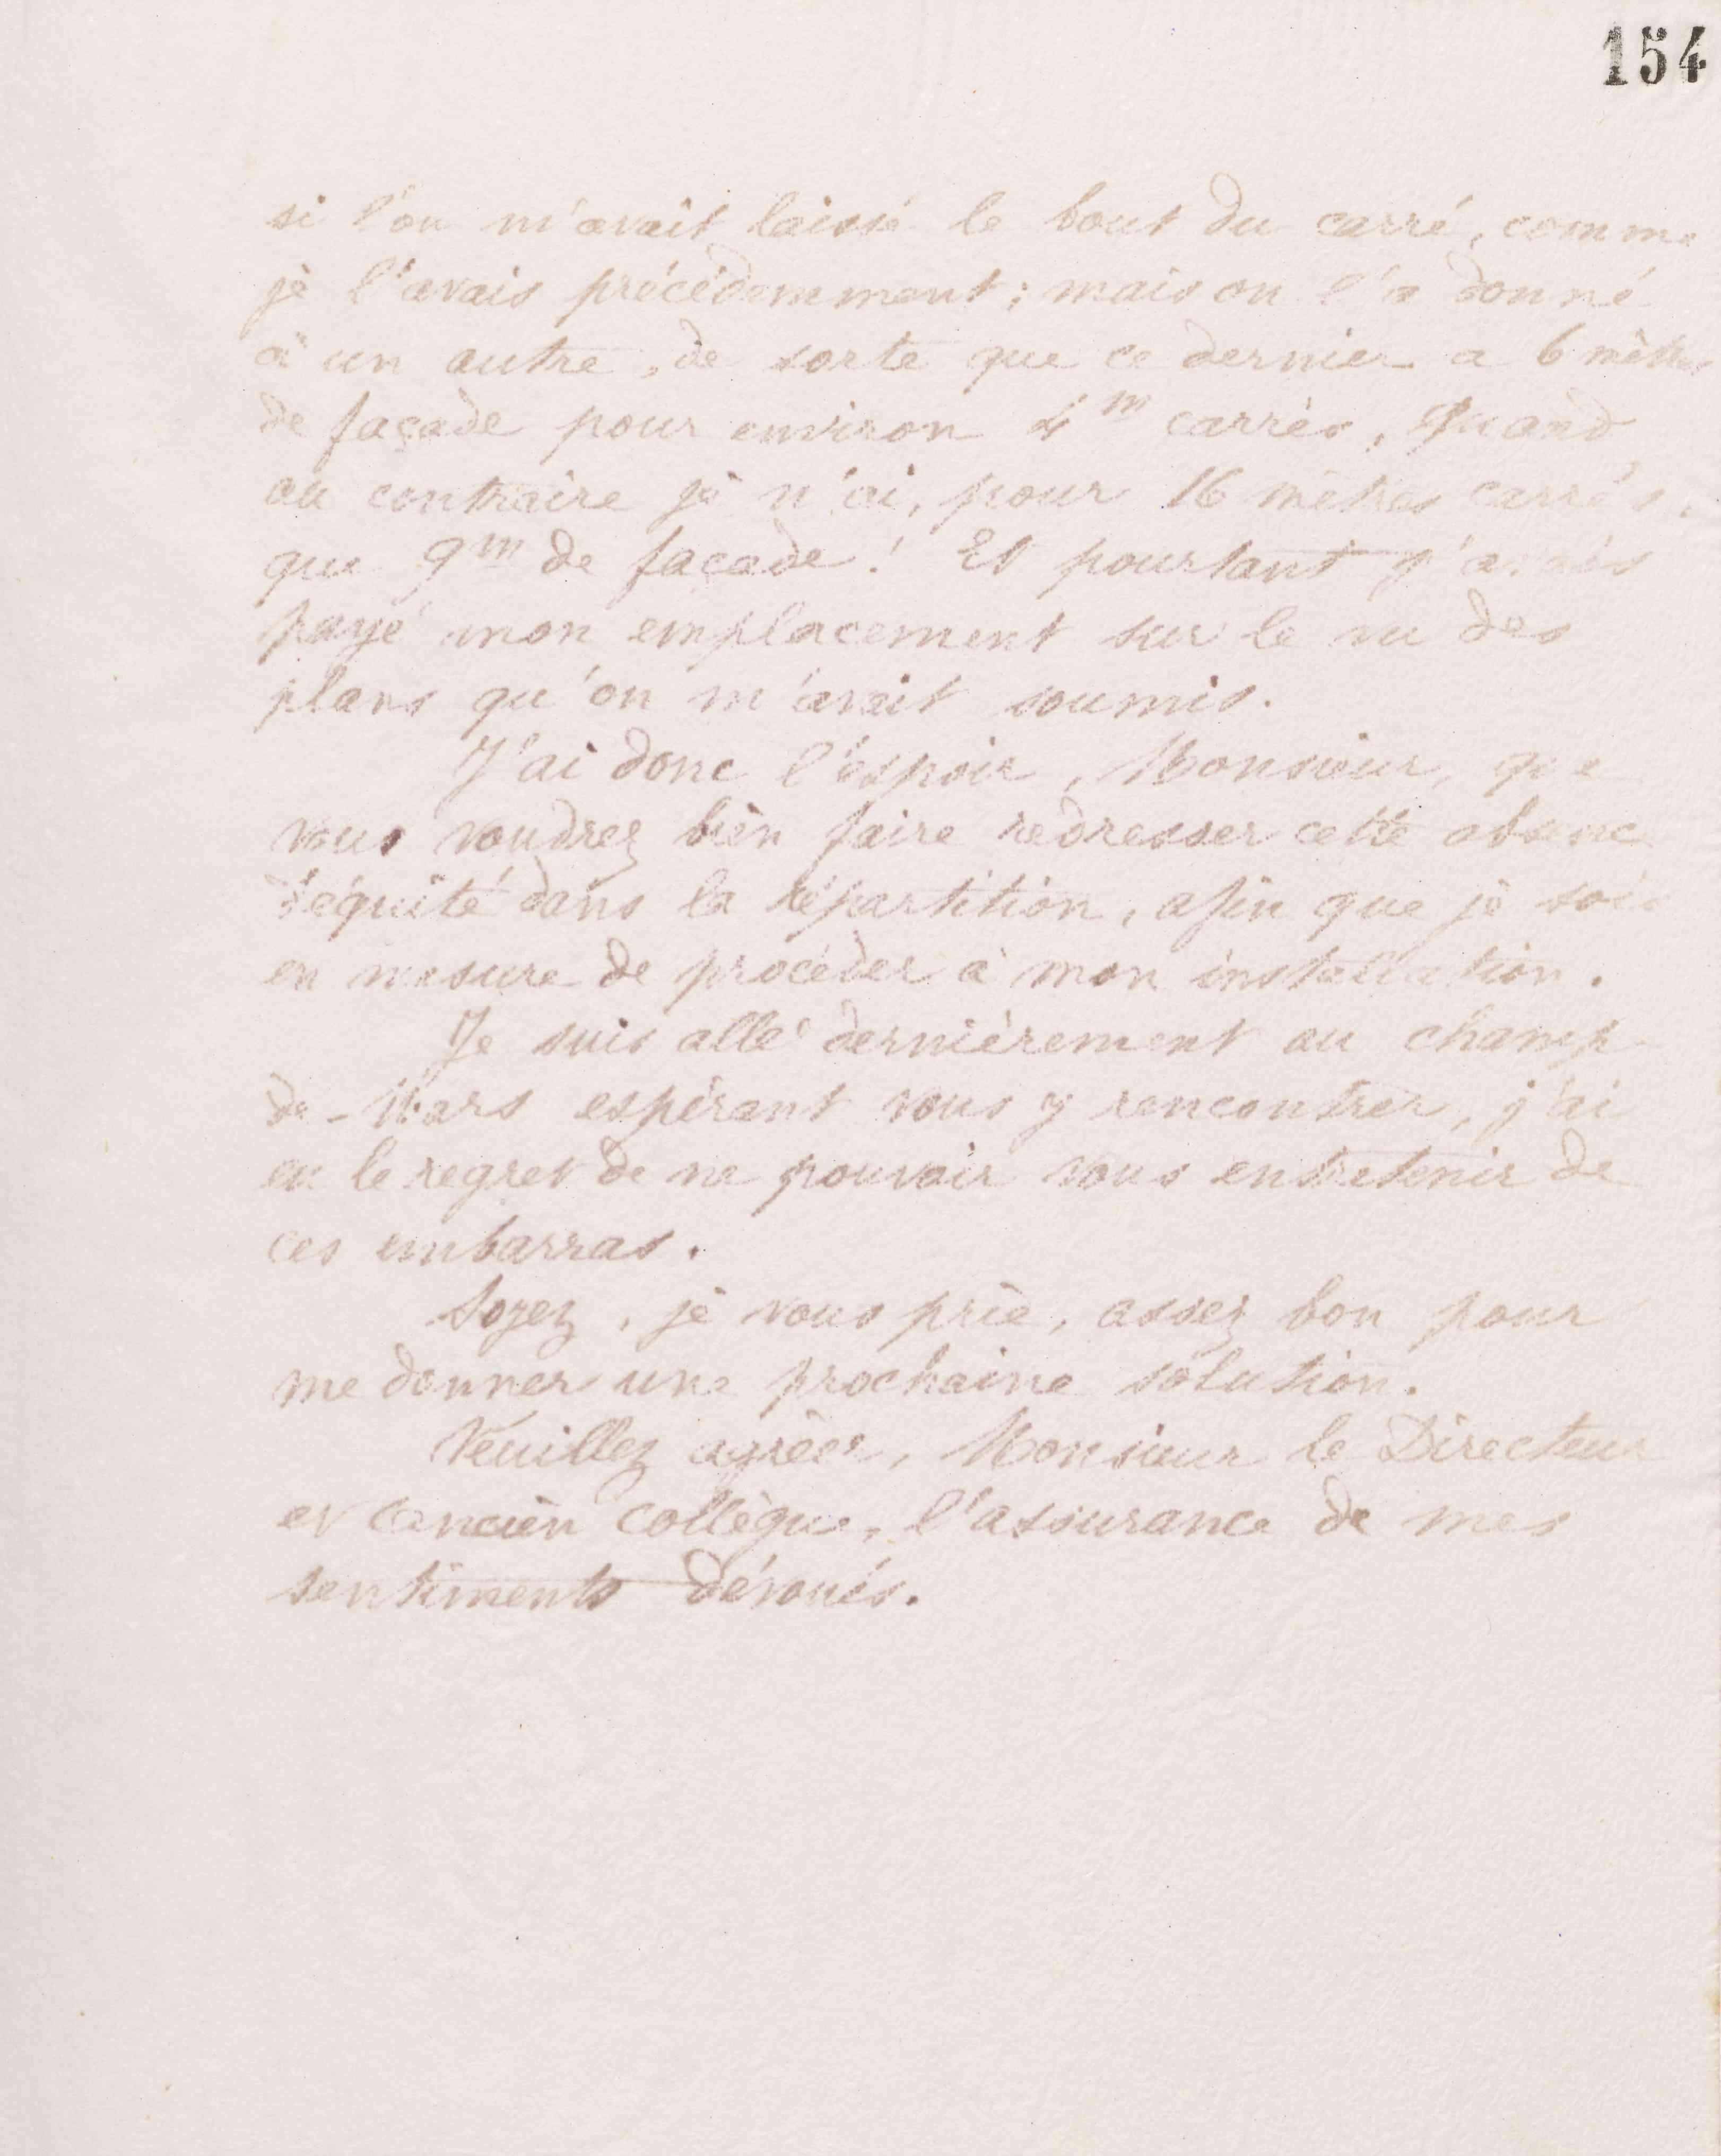 154
si l'on m'avait laissé le bout du carré, comme
je l'avais précédemment ; mais on l'a donné
à un autre, de sorte que ce dernier a 6 mètres
de façade pour environ 4 m carrés, quand
au contraire je n'ai, pour 16 mètres carrés,
que 9m de façade ! Et pourtant j'avais
payé mon emplacement sur le vu des
plans qu'on m'avait soumis.
J'ai donc l'espoir, Monsieur, que
vous voudrez bien faire redresser cette absence
d'équité dans la répartition, afin que je sois
en mesure de procéder à mon installation.
Je suis allé dernièrement au champ-
de-Mars espérant vous y rencontrer, j'ai
eu le regret de ne pouvoir vous entretenir de
ces embarras.
Soyez, je vous prie, assez bon pour
me donner une prochaine solution.
Veuillez agréer, Monsieur le Directeur
et ancien collègue, l'assurance de mes
sentiments dévoués.